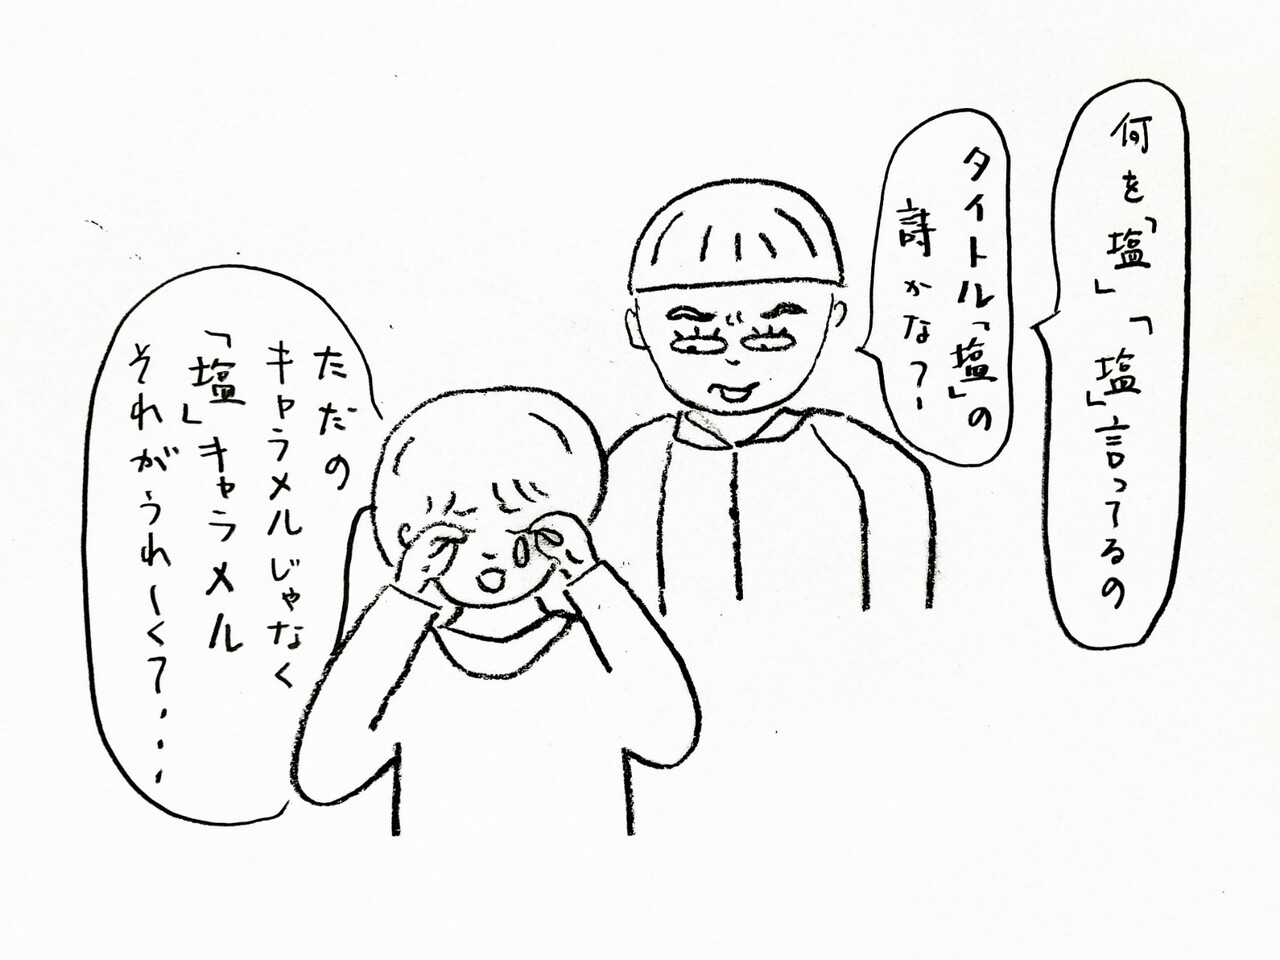 何を「塩」「塩」言ってるの
タイトル「塩」の
詩かな？
ただの
キャラメルじゃなく
「塩」キャラメル
それがうれーくて・・・